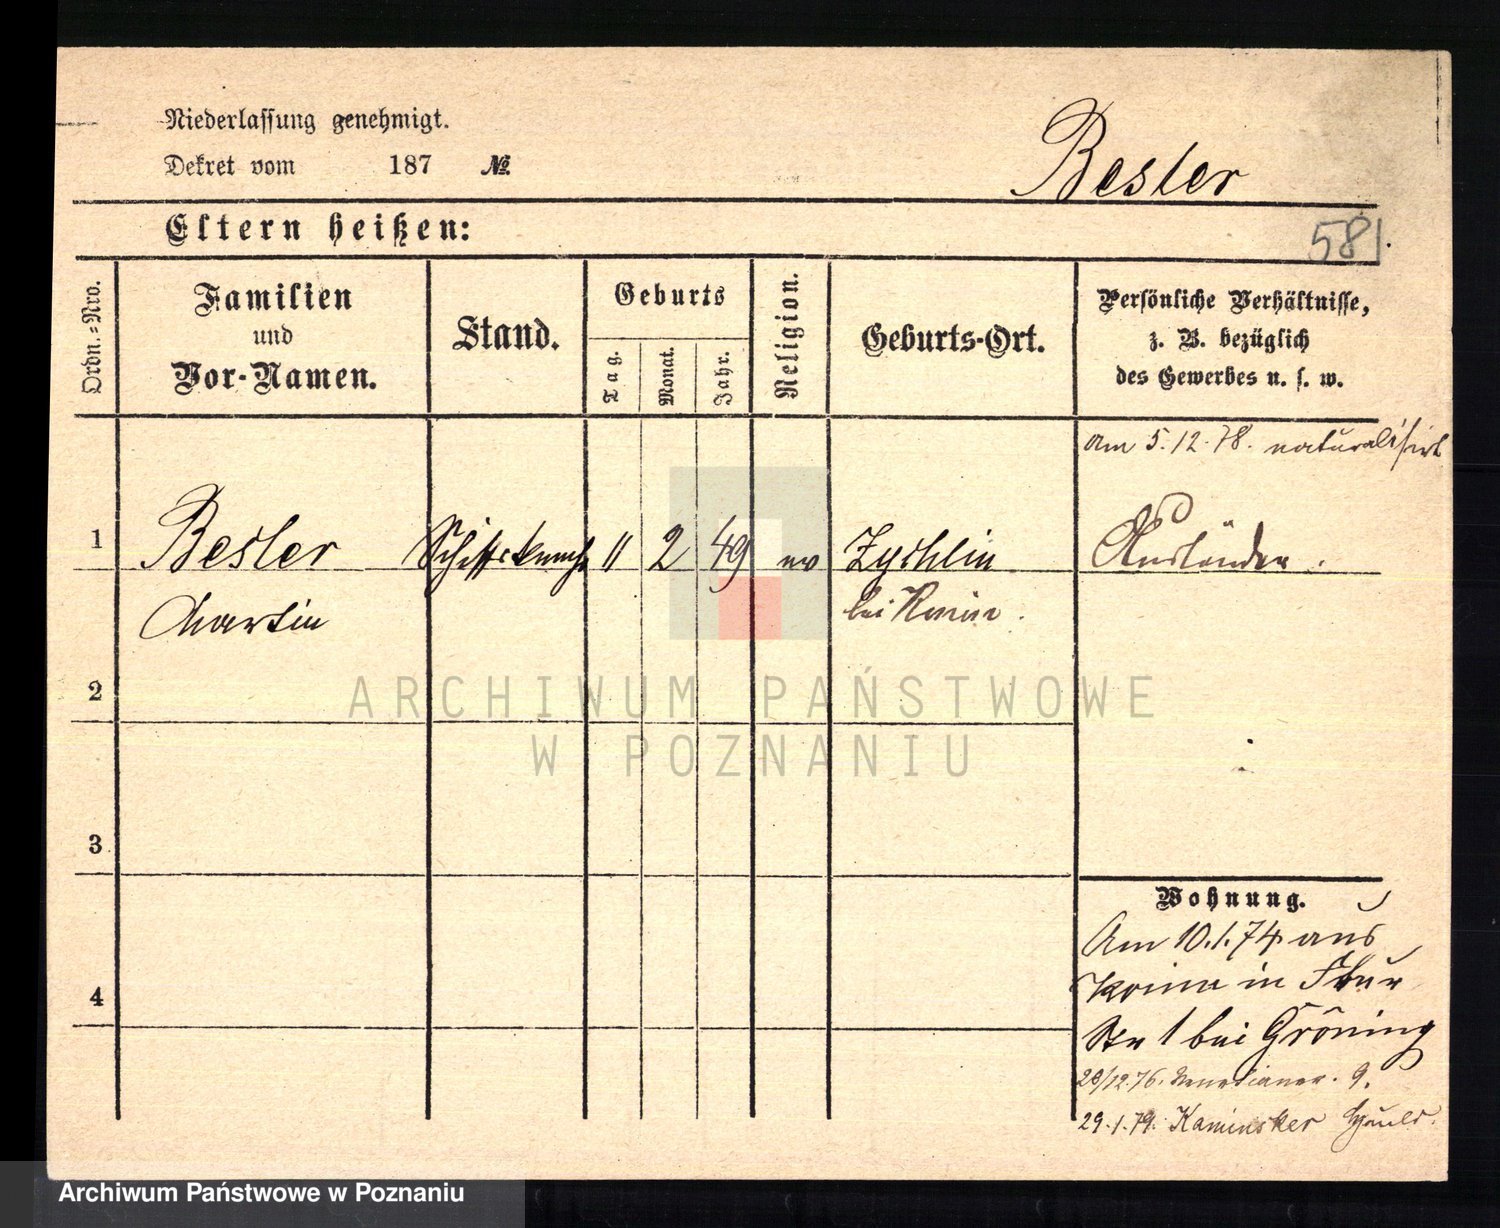 Niederlassung genehmigt.
Dekret vom 187 №
Bester
Eltern heißen:
581.
Ordn.=Nro.
Familien
und
Vor-Namen.
Stand.
Geburts
Tag.
Monat.
Jahr.
Religion.
Geburts-Ort.
Persönliche Verhältnisse,
z. B. bezüglich
des Gewerbes u. s. w.
Am 5.12.78. naturalisirt
1
Bester
Schiffsknecht
11
2
49
ev
Zychlin
Ausländer.
Martin
bei Konin.
2
3
4
Wohnung.
Am 10.1.74 aus
Konin in
Str 1 bei Gröning
29/12.76. Venetianer. 9.
29.1.79. Kaminsker
ARCHIWUM PAŃSTWOWE
W POZNANIU
Archiwum Państwowe w Poznaniu